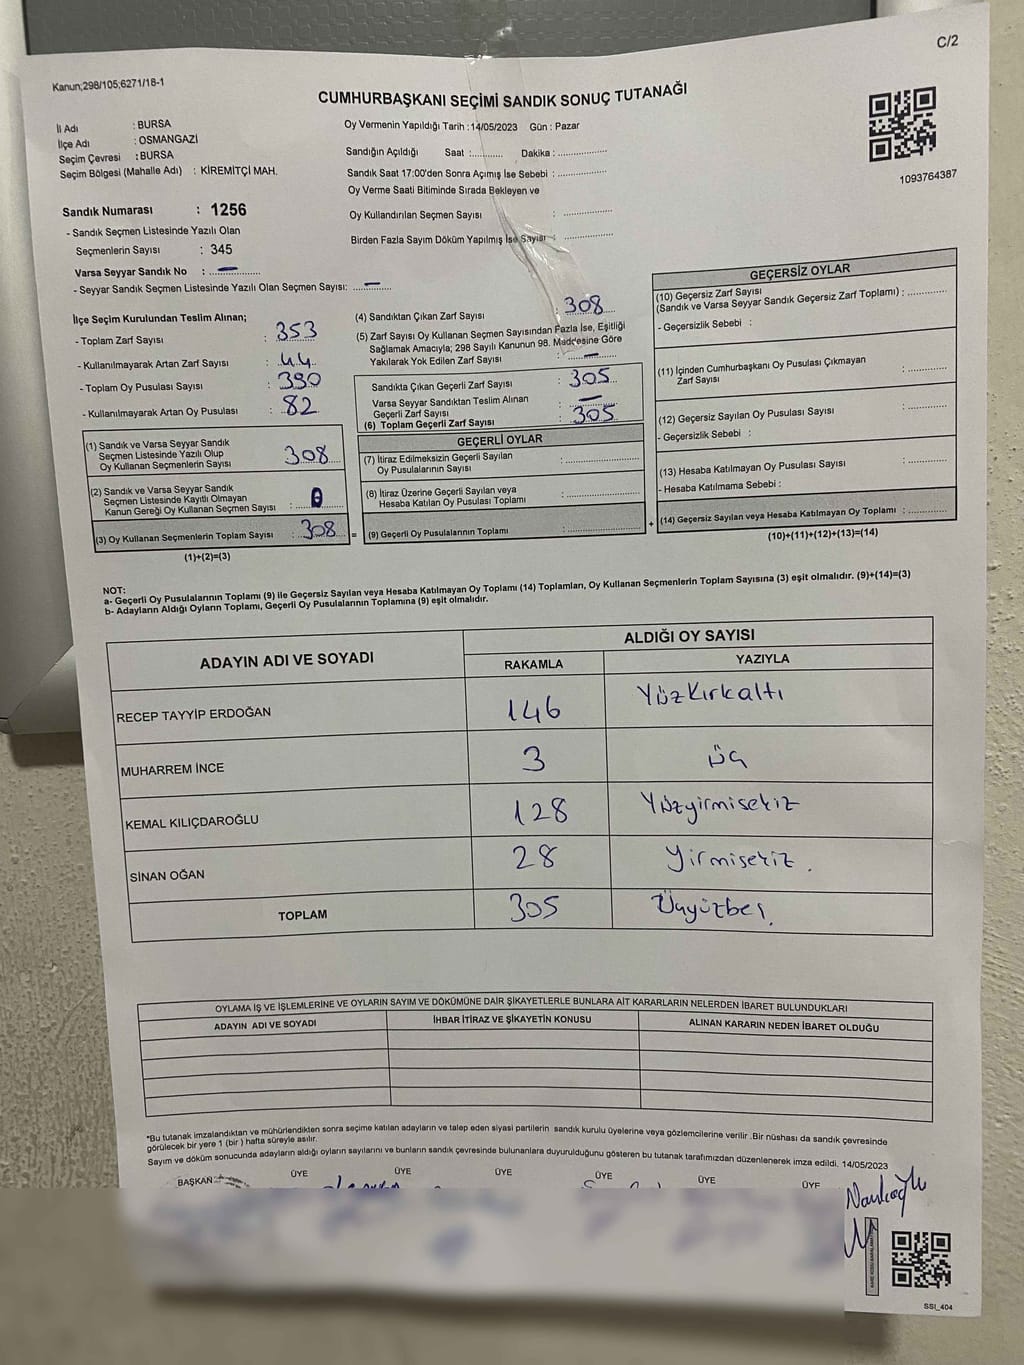 C/2
Kanun;298/105;6271/18-1
CUMHURBAŞKANI SEÇİMİ SANDIK SONUÇ TUTANAĞI
İl Adı : BURSA
İlçe Adı : OSMANGAZİ
Seçim Çevresi : BURSA
Seçim Bölgesi (Mahalle Adı) : KİREMİTÇİ MAH.
Oy Vermenin Yapıldığı Tarih :14/05/2023 Gün : Pazar
Sandığın Açıldığı Saat :........... Dakika :................
Sandık Saat 17:00'den Sonra Açımış İse Sebebi :................
Oy Verme Saati Bitiminde Sırada Bekleyen ve
Oy Kullandırılan Seçmen Sayısı : ................
Birden Fazla Sayım Döküm Yapılmış İse Sayısı : ................
1093764387
Sandık Numarası : 1256
- Sandık Seçmen Listesinde Yazılı Olan
Seçmenlerin Sayısı : 345
Varsa Seyyar Sandık No : —
- Seyyar Sandık Seçmen Listesinde Yazılı Olan Seçmen Sayısı: —
İlçe Seçim Kurulundan Teslim Alınan;
- Toplam Zarf Sayısı : 353
- Kullanılmayarak Artan Zarf Sayısı : 44
- Toplam Oy Pusulası Sayısı : 390
- Kullanılmayarak Artan Oy Pusulası : 82
(1) Sandık ve Varsa Seyyar Sandık
Seçmen Listesinde Yazılı Olup
Oy Kullanan Seçmenlerin Sayısı : 308
(2) Sandık ve Varsa Seyyar Sandık
Seçmen Listesinde Kayıtlı Olmayan
Kanun Gereği Oy Kullanan Seçmen Sayısı : 0
(3) Oy Kullanan Seçmenlerin Toplam Sayısı : 308
(1)+(2)=(3)
(4) Sandıktan Çıkan Zarf Sayısı : 308
(5) Zarf Sayısı Oy Kullanan Seçmen Sayısından Fazla İse, Eşitliği
Sağlamak Amacıyla; 298 Sayılı Kanunun 98. Maddesine Göre
Yakılarak Yok Edilen Zarf Sayısı : —
Sandıkta Çıkan Geçerli Zarf Sayısı : 305
Varsa Seyyar Sandıktan Teslim Alınan
Geçerli Zarf Sayısı : —
(6) Toplam Geçerli Zarf Sayısı : 305
GEÇERLİ OYLAR
(7) İtiraz Edilmeksizin Geçerli Sayılan
Oy Pusulalarının Sayısı :................
(8) İtiraz Üzerine Geçerli Sayılan veya
Hesaba Katılan Oy Pusulası Toplamı :................
= (9) Geçerli Oy Pusulalarının Toplamı :................
GEÇERSİZ OYLAR
(10) Geçersiz Zarf Sayısı
(Sandık ve Varsa Seyyar Sandık Geçersiz Zarf Toplamı) :............
- Geçersizlik Sebebi :
(11) İçinden Cumhurbaşkanı Oy Pusulası Çıkmayan
Zarf Sayısı :............
(12) Geçersiz Sayılan Oy Pusulası Sayısı :............
- Geçersizlik Sebebi :
(13) Hesaba Katılmayan Oy Pusulası Sayısı :............
- Hesaba Katılmama Sebebi :
+ (14) Geçersiz Sayılan veya Hesaba Katılmayan Oy Toplamı :............
(10)+(11)+(12)+(13)=(14)
NOT:
a- Geçerli Oy Pusulalarının Toplamı (9) ile Geçersiz Sayılan veya Hesaba Katılmayan Oy Toplamı (14) Toplamları, Oy Kullanan Seçmenlerin Toplam Sayısına (3) eşit olmalıdır. (9)+(14)=(3)
b- Adayların Aldığı Oyların Toplamı, Geçerli Oy Pusulalarının Toplamına (9) eşit olmalıdır.
ADAYIN ADI VE SOYADI ALDIĞI OY SAYISI
RAKAMLA YAZIYLA
RECEP TAYYİP ERDOĞAN 146 Yüzkırkaltı
MUHARREM İNCE 3 Üç
KEMAL KILIÇDAROĞLU 128 Yüzyirmisekiz
SİNAN OĞAN 28 Yirmisekiz.
TOPLAM 305 Üçyüzbeş.
OYLAMA İŞ VE İŞLEMLERİNE VE OYLARIN SAYIM VE DÖKÜMÜNE DAİR ŞİKAYETLERLE BUNLARA AİT KARARLARIN NELERDEN İBARET BULUNDUKLARI
ADAYIN ADI VE SOYADI İHBAR İTİRAZ VE ŞİKAYETİN KONUSU ALINAN KARARIN NEDEN İBARET OLDUĞU
*Bu tutanak imzalandıktan ve mühürlendikten sonra seçime katılan adayların ve talep eden siyasi partilerin sandık kurulu üyelerine veya gözlemcilerine verilir .Bir nüshası da sandık çevresinde
görülecek bir yere 1 (bir ) hafta süreyle asılır.
Sayım ve döküm sonucunda adayların aldığı oyların sayılarını ve bunların sandık çevresinde bulunanlara duyurulduğunu gösteren bu tutanak tarafımızdan düzenlenerek imza edildi. 14/05/2023
BAŞKAN ÜYE ÜYE ÜYE ÜYE ÜYE ÜYE
SSI_404